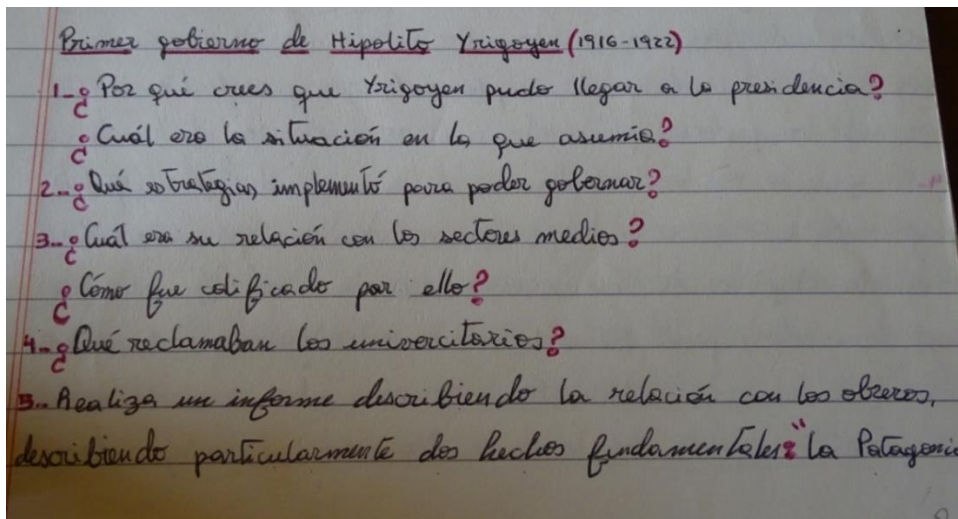 Primer gobierno de Hipolito Yrigoyen (1916-1922)
1-¿Por qué crees que Yrigoyen pudo llegar a la presidencia?
¿Cuál era la situación en la que asumía?
2-¿Qué estrategias implementó para poder gobernar?
3-¿Cuál era su relación con los sectores medios?
¿Cómo fue calificado por ello?
4-¿Qué reclamaban los univercitarios?
5-Realiza un informe describiendo la relación con los obreros,
describiendo particularmente dos hechos fundamentales: "la Patagonia